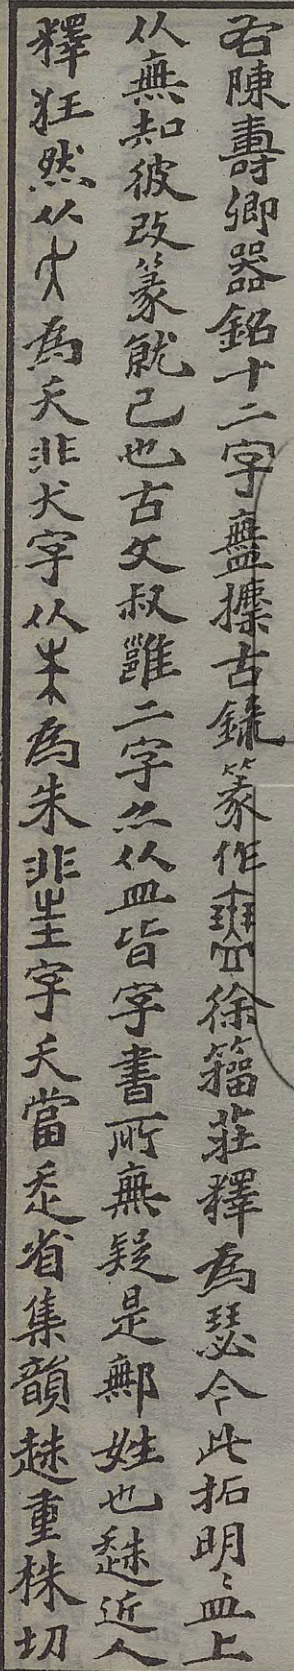 右陳壽卿器銘十二字𥂴攗古錄篆作徐籀莊釋為瑟今此拓明〻皿上
从無知彼改篆就己也古文叔雝二字亦从皿皆字書所無疑是鄦姓也趎近人
釋狂然从为夭非犬字从为朱非㞷字夭當走省集韻趎重株切